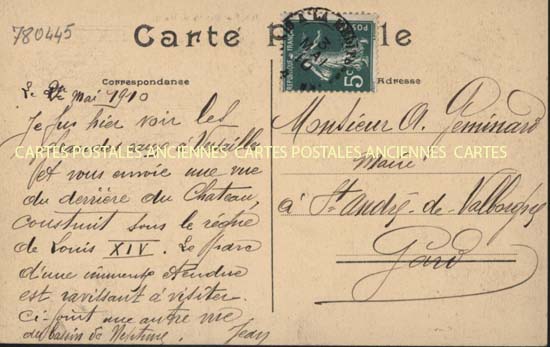 780445
Carte Postale
Correspondance
Adresse
Le 2 Mai 1910
Je fus hier voir les
grandes eaux à Versailles
et vous envoie une vue
du derrière du Chateau,
construit sous le règne
de Louis XIV. Le parc
d'une immense étendue
est ravissant à visiter.
Ci-joint une autre vue
du bassin de Neptune.
Jean
Monsieur A. Géminard
Maire
à St André-de-Valborgne
Gard
5c
POSTES
CARTES POSTALES ANCIENNES CARTES POSTALES ANCIENNES CARTES